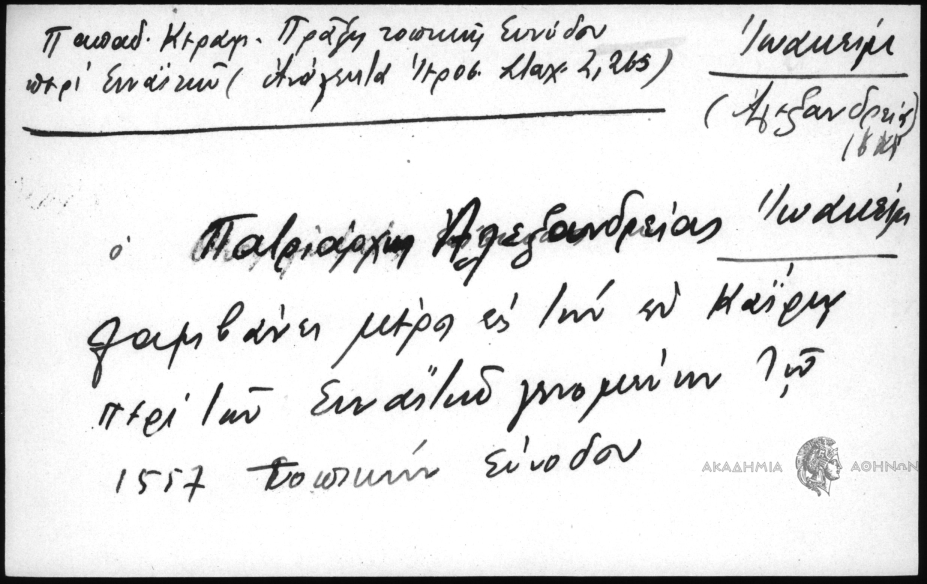 Παπαδ. Κεραμ. Πράξις τοπικής Συνόδου
περί Σιναϊτών (Ανάλεκτα Ιεροσ. Σταχ. 2, 263)
Ιωακείμ
(Αλεξανδρείας)
ὁ Πατριάρχης Ἀλεξανδρείας Ἰωακείμ
λαμβάνει μέρος εἰς τήν ἐν Καΐρῳ
περί τῶν Σιναϊτῶν γενομένην τῷ
1557 τοπικήν σύνοδον
ΑΚΑΔΗΜΙΑ ΑΘΗΝΩΝ